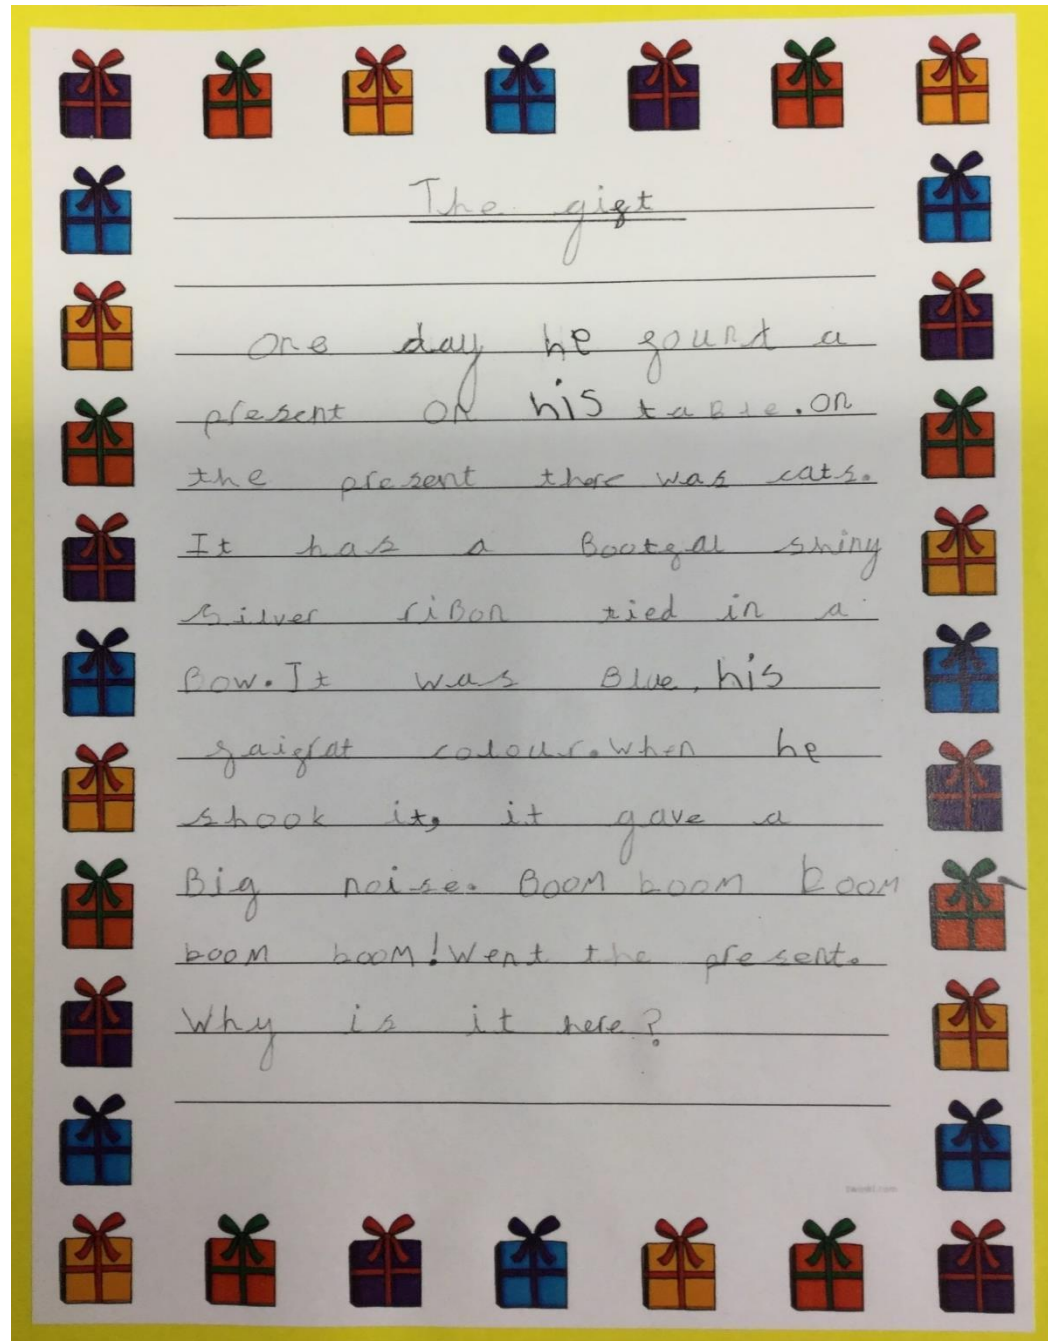 The gift
One day he found a
present on his taBle. on
the present there was cats.
It has a Bootfal shiny
silver riBon tied in a
Bow. It was Blue, his
faifrat colour. When he
shook it, it gave a
Big noise. BOOM boom boom
boom boom! Went the present.
Why is it here?